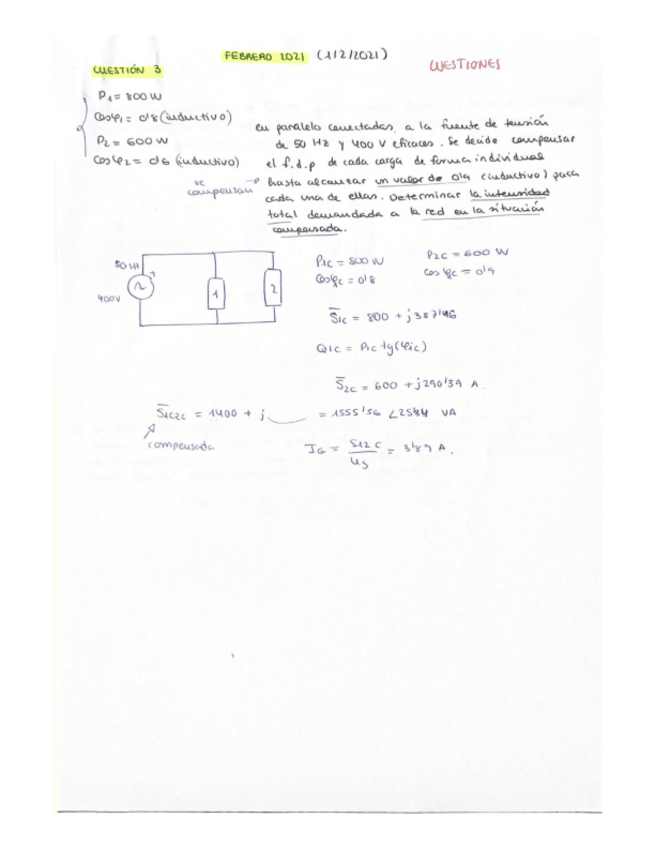 FEBRERO 2021 (1/2/2021)
CUESTIÓN 3
CUESTIONES
P1 = 800 W
Cosφ1 = 0'8 (inductivo)
P2 = 600 W
Cosφ2 = 0'6 (inductivo)
en paralelo conectadas, a la fuente de tensión
de 50 Hz y 400 V eficaces. Se decide compensar
el f.d.p de cada carga de forma individual
hasta alcanzar un valor de 0'9 (inductivo) para
cada una de ellas. Determinar la intensidad
total demandada a la red en la situación
compensada.
se
compensan
50 Hz
400V
1
2
P1C = 800 W
cosφc = 0'8
P2C = 600 W
cos φc = 0'9
S1C = 800 + j387'46
Q1C = P1C tg(φ1C)
S2C = 600 + j290'39 A.
S1C2C = 1400 + j = 1555'56 ∠25'84 VA
compensada
IG = S12C / US = 3'89 A.